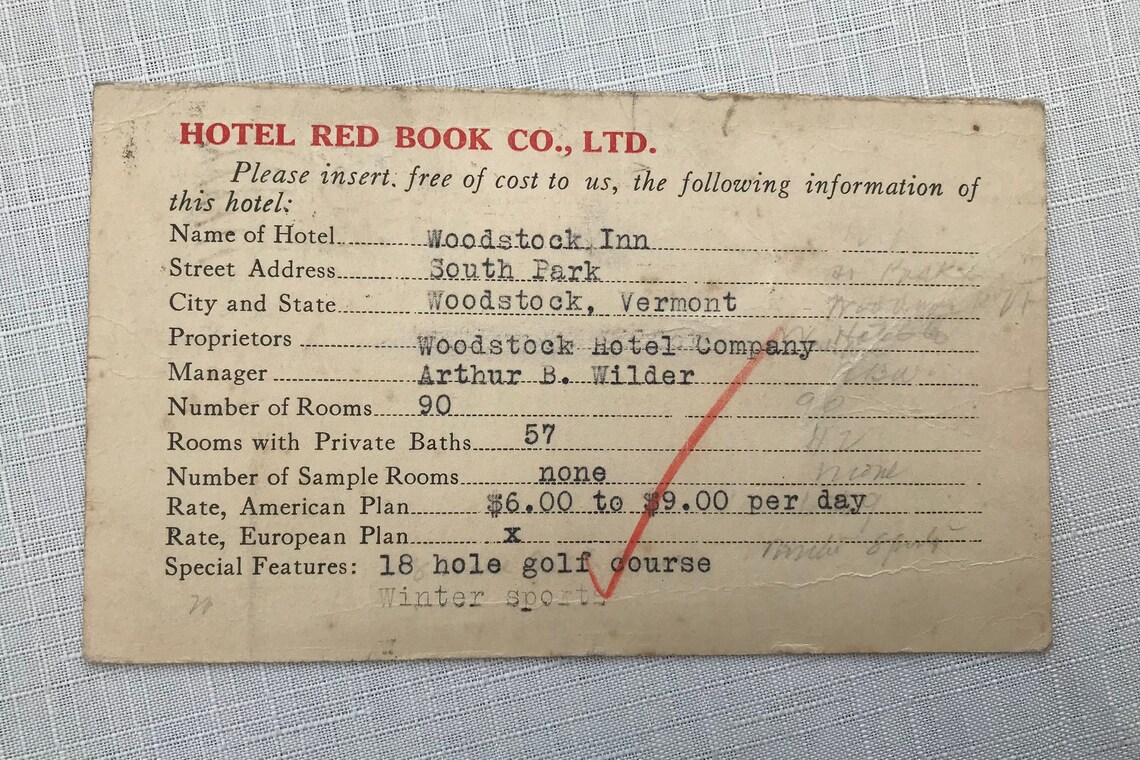 HOTEL RED BOOK CO., LTD.
Please insert. free of cost to us, the following information of
this hotel:
Name of Hotel Woodstock Inn
Street Address South Park
City and State Woodstock, Vermont
Proprietors Woodstock Hotel Company
Manager Arthur B. Wilder
Number of Rooms 90 90
Rooms with Private Baths 57
Number of Sample Rooms none none
Rate, American Plan $6.00 to $9.00 per day
Rate, European Plan x
Special Features: 18 hole golf course
Winter sports